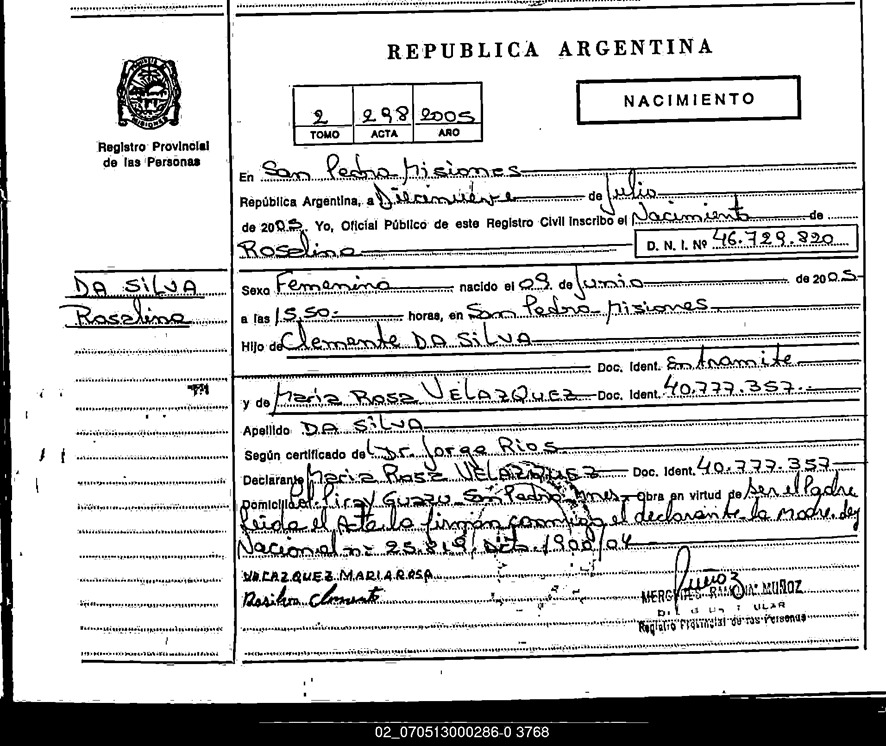 REPUBLICA ARGENTINA
2 298 2005
TOMO ACTA AÑO
NACIMIENTO
Registro Provincial
de las Personas
En San Pedro Misiones
República Argentina, a Diecinueve de Julio
de 2005. Yo, Oficial Público de este Registro Civil inscribo el Nacimiento de
Roselina
D. N. I. Nº 46.729.820
DA SILVA
Roselina
Sexo Femenino nacido el 09 de Junio de 2005
a las 15,50.- horas, en San Pedro Misiones
Hijo de Clemente DA SILVA
Doc. Ident. En tramite
y de Maria Rosa VELAZQUEZ Doc. Ident. 40.777.357.-
Apellido DA SILVA
Según certificado de Dr. Jorge Rios
Declarante Maria Rosa VELAZQUEZ Doc. Ident. 40.777.357
Domicilio Piray Guazu San Pedro Mnes obra en virtud de ser el Padre
leida el Acta la firman conmigo el declarante la Madre. Ley
Nacional nº 25.819, Dcto. 1900/04
VELAZQUEZ MARIA ROSA
Dasilva Clemente
Muñoz
MERCEDES RAMONA MUÑOZ
Registro Provincial de las Personas
02_070513000286-0 3768